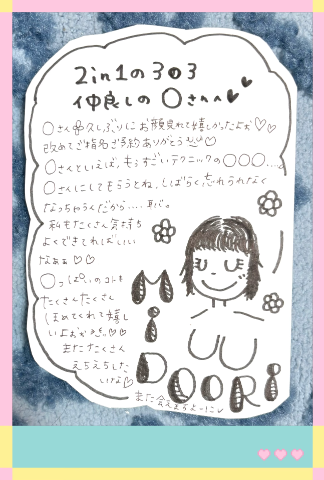 2in1の303
仲良しの〇さんへ♥
〇さん久しぶりにお顔見れて嬉しかったよぉ♡♡
改めてご指名ご予約ありがとう♡
〇さんといえば、もうすごいテクニックの〇〇〇....
〇さんにしてもらうとね、しばらく忘れられなく
なっちゃうんだから....
私もたくさん気持ち
よくできてればいい
なぁぁ♡♡
〇っぱいのコトも
たくさんたくさん
ほめてくれて嬉し
いよぉ♡♡
またたくさん
えちえちした
いな♡
また会えますよーに♡
MiDOORi